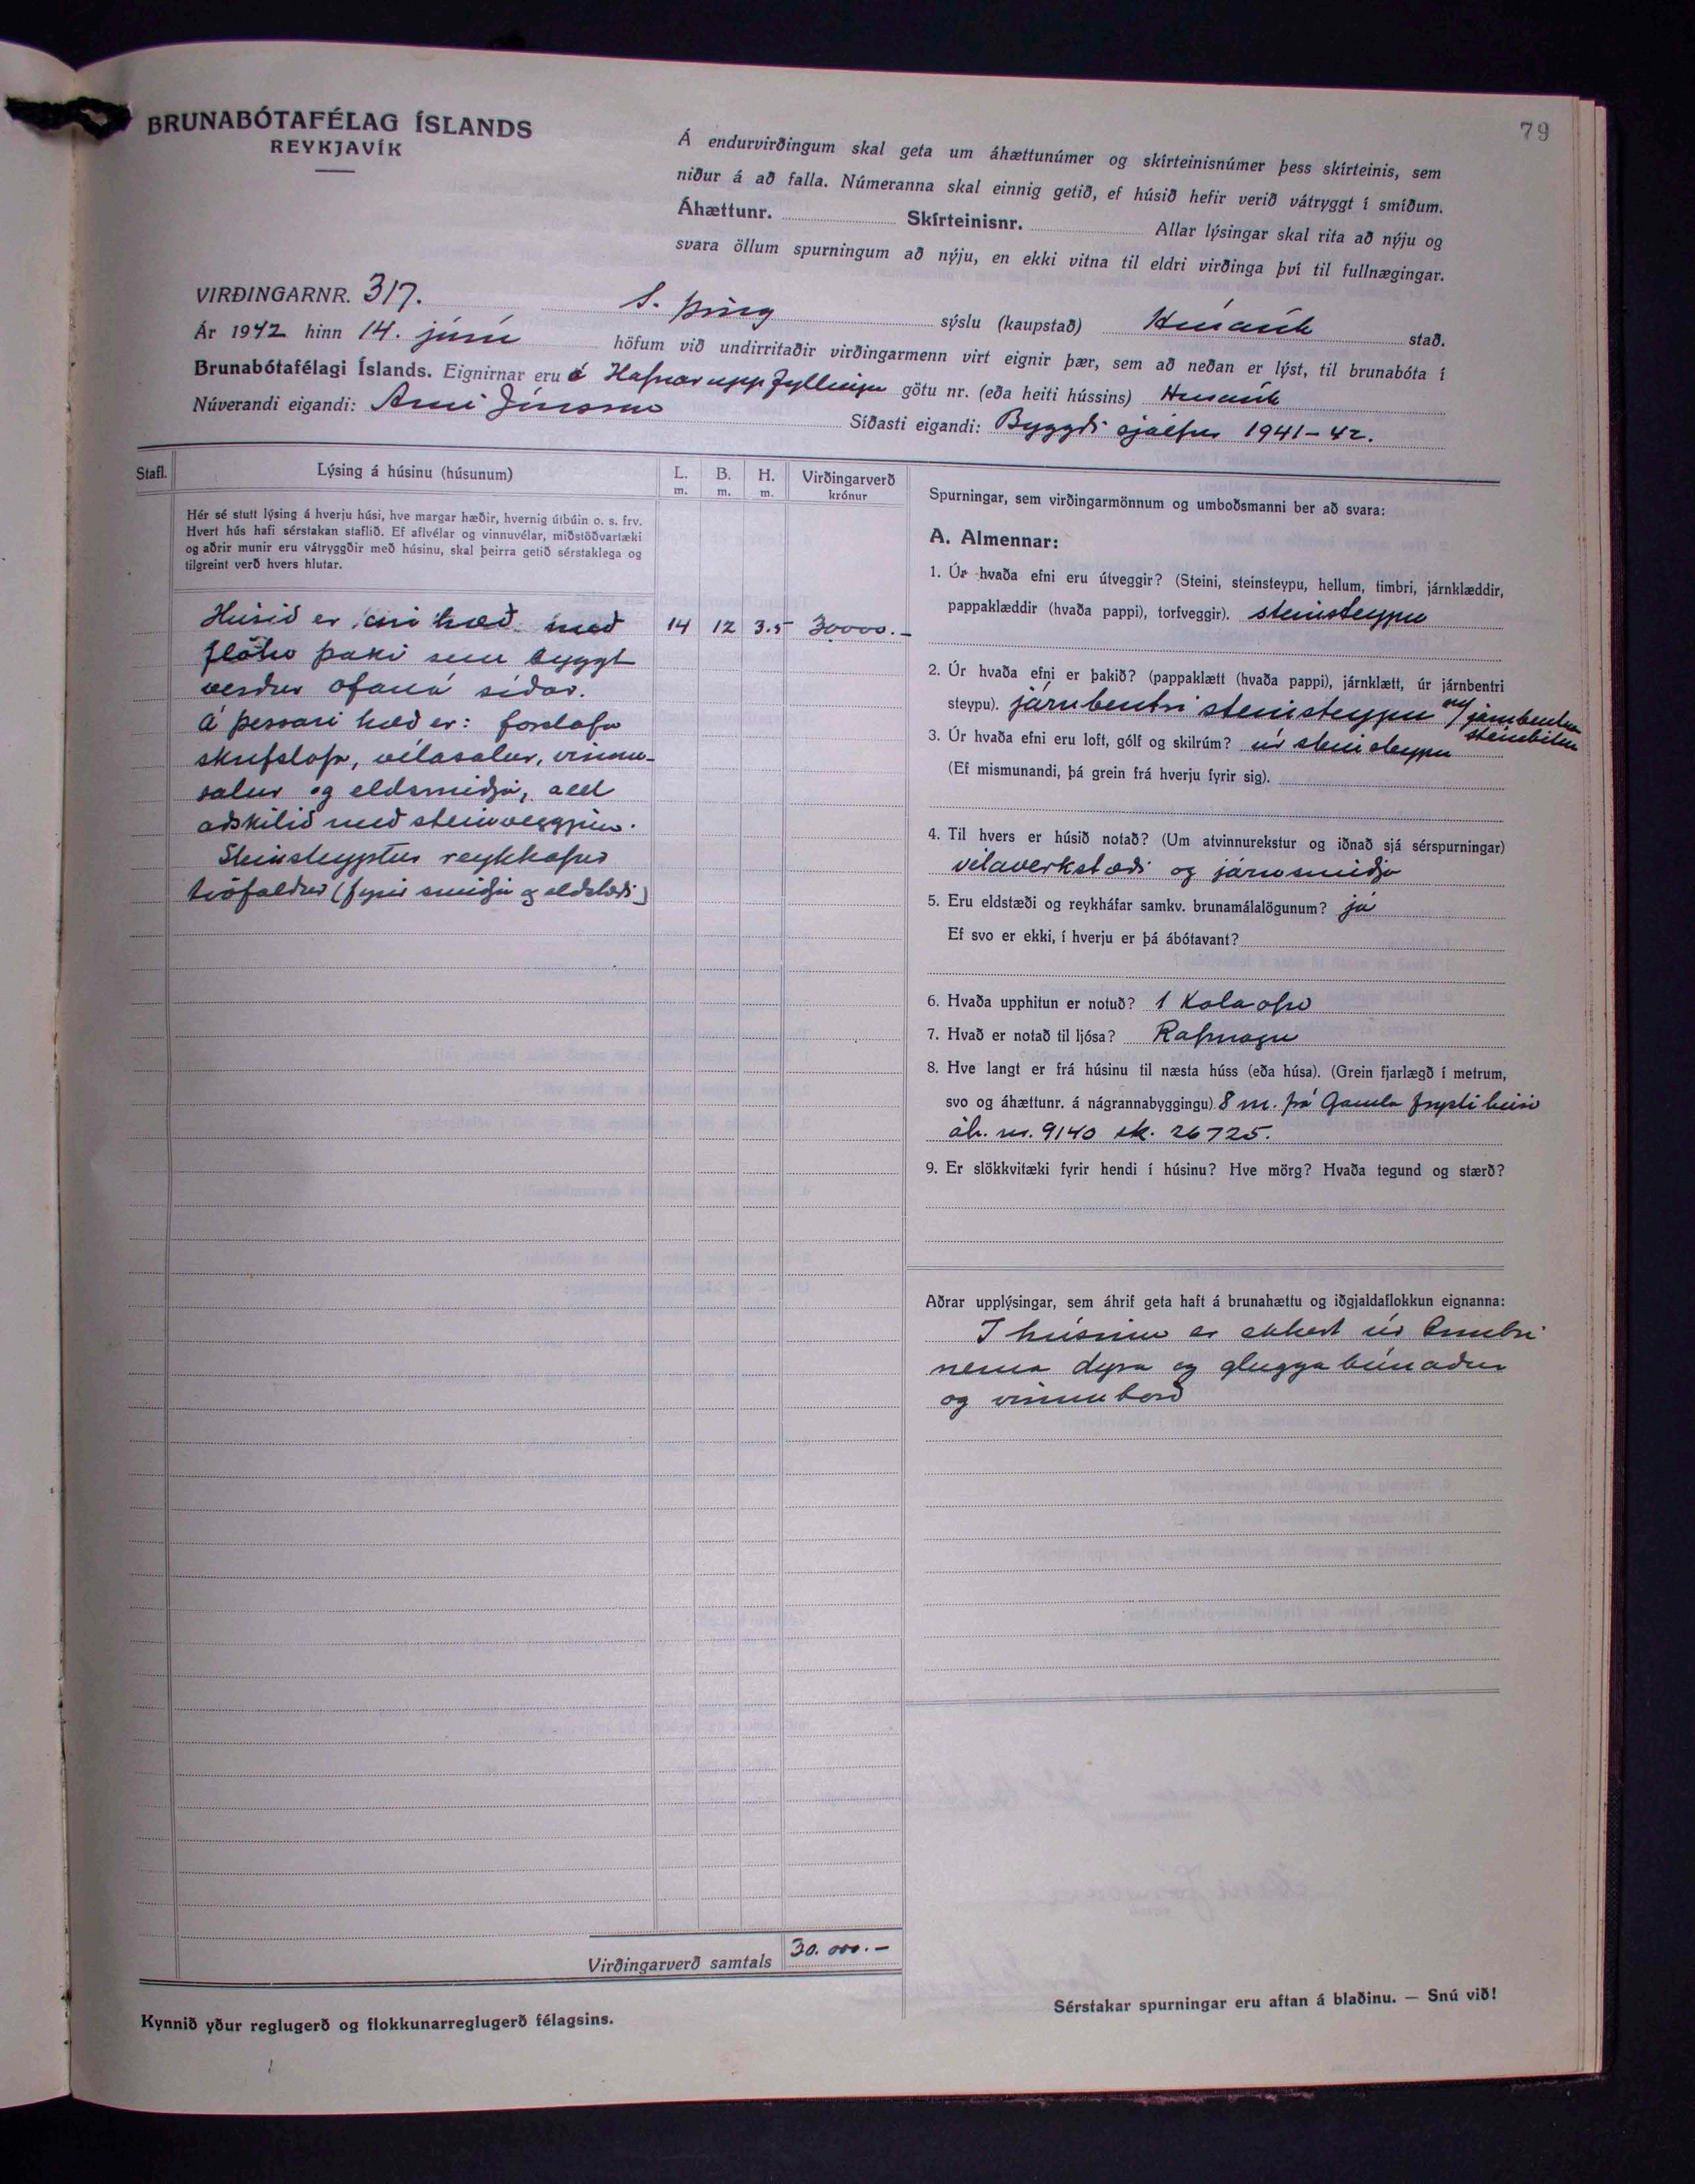 79
BRUNABÓTAFÉLAG ÍSLANDS
REYKJAVÍK
Á endurvirðingum skal geta um áhættunúmer og skírteinisnúmer þess skírteinis, sem
niður á að falla. Númeranna skal einnig getið, ef húsið hefir verið vátryggt í smíðum.
Áhættunr. Skírteinisnr. Allar lýsingar skal rita að nýju og
svara öllum spurningum að nýju, en ekki vitna til eldri virðinga því til fullnægingar.
VIRÐINGARNR. 317. S. Þing sýslu (kaupstað) Húsavík stað.
Ár 1942 hinn 14. júní höfum við undirritaðir virðingarmenn virt eignir þær, sem að neðan er lýst, til brunabóta í
Brunabótafélagi Íslands. Eignirnar eru á Hafnaruppfyllingu götu nr. (eða heiti hússins) Húsavík
Núverandi eigandi: Árni Jónsson Síðasti eigandi: Byggði sjálfur 1941-42.
Stafl. Lýsing á húsinu (húsunum) L. m. B. m. H. m. Virðingarverð krónur
Hér sé stutt lýsing á hverju húsi, hve margar hæðir, hvernig útbúin o. s. frv.
Hvert hús hafi sérstakan staflið. Ef aflvélar og vinnuvélar, miðstöðvartæki
og aðrir munir eru vátryggðir með húsinu, skal þeirra getið sérstaklega og
tilgreint verð hvers hlutar.
Húsið er ein hæð með 14 12 3.5 30000.-
flötu þaki sem byggt
verður ofaná síðar.
Á þessari hæð er: forstofa
skrifstofa, vélasalur, vinnu-
salur og eldsmiðja, allt
aðskilið með steinveggjum.
Steinsteyptur reykháfur
tvöfaldur (fyrir smiðju og eldstæði)
Virðingarverð samtals 30.000.-
Kynnið yður reglugerð og flokkunarreglugerð félagsins.
Spurningar, sem virðingarmönnum og umboðsmanni ber að svara:
A. Almennar:
1. Úr hvaða efni eru útveggir? (Steini, steinsteypu, hellum, timbri, járnklæddir,
pappaklæddir (hvaða pappi), torfveggir). steinsteypu
2. Úr hvaða efni er þakið? (pappaklætt (hvaða pappi), járnklætt, úr járnbentri
steypu). járnbentri steinsteypu m/ járnbentum
steinbitum
3. Úr hvaða efni eru loft, gólf og skilrúm? úr steinsteypu
(Ef mismunandi, þá grein frá hverju fyrir sig).
4. Til hvers er húsið notað? (Um atvinnurekstur og iðnað sjá sérspurningar)
vélaverkstæði og járnsmiðja
5. Eru eldstæði og reykháfar samkv. brunamálalögunum? já
Ef svo er ekki, í hverju er þá ábótavant?
6. Hvaða upphitun er notuð? 1 kolaofn
7. Hvað er notað til ljósa? Rafmagn
8. Hve langt er frá húsinu til næsta húss (eða húsa). (Grein fjarlægð í metrum,
svo og áhættunr. á nágrannabyggingu) 8 m. frá Gamla frystihúsi
áh. nr. 9140 sk. 26725.
9. Er slökkvitæki fyrir hendi í húsinu? Hve mörg? Hvaða tegund og stærð?
Aðrar upplýsingar, sem áhrif geta haft á brunahættu og iðgjaldaflokkun eignanna:
Í húsinu er ekkert úr timbri
nema dyra og gluggabúnaður
og vinnuborð
Sérstakar spurningar eru aftan á blaðinu. — Snú við!